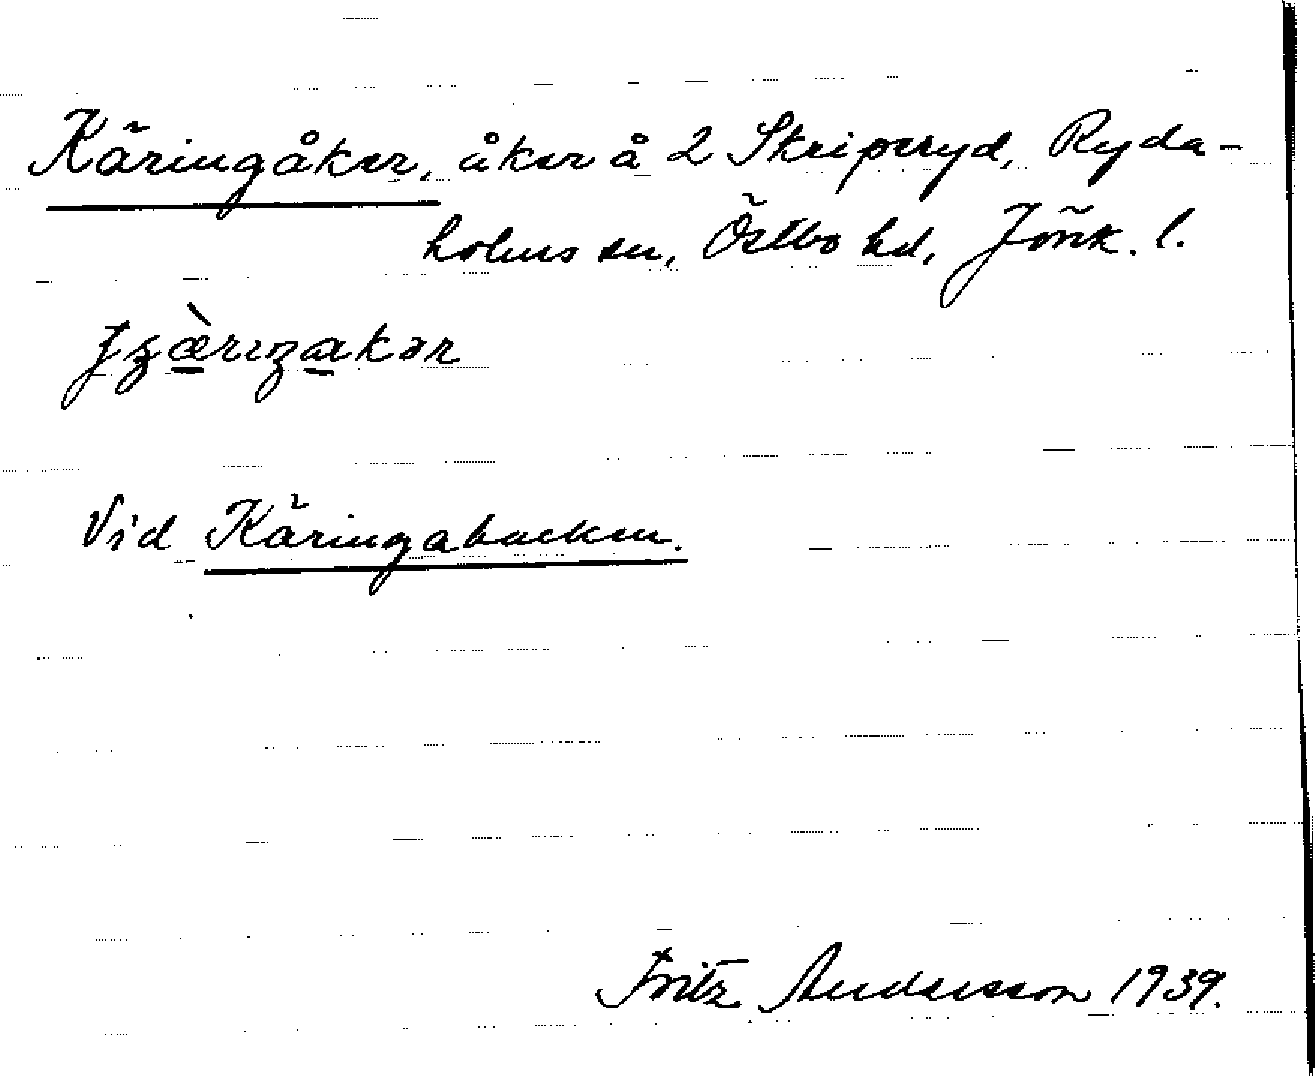 Käringåker, åker å 2 Skriperyd, Ryda-
holms sn, Östbo hd, Jönk. l.
Vid Käringabacken.
Fritz Andersson 1939.